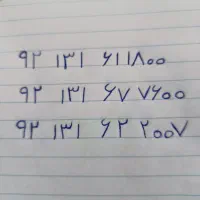 ۹۲ ۱۳۱ ۶۱۱۸۰۰
۹۲ ۱۳۱ ۶۷ ۷۶۰۰
۹۲ ۱۳۱ ۶۲ ۲۰۰۷